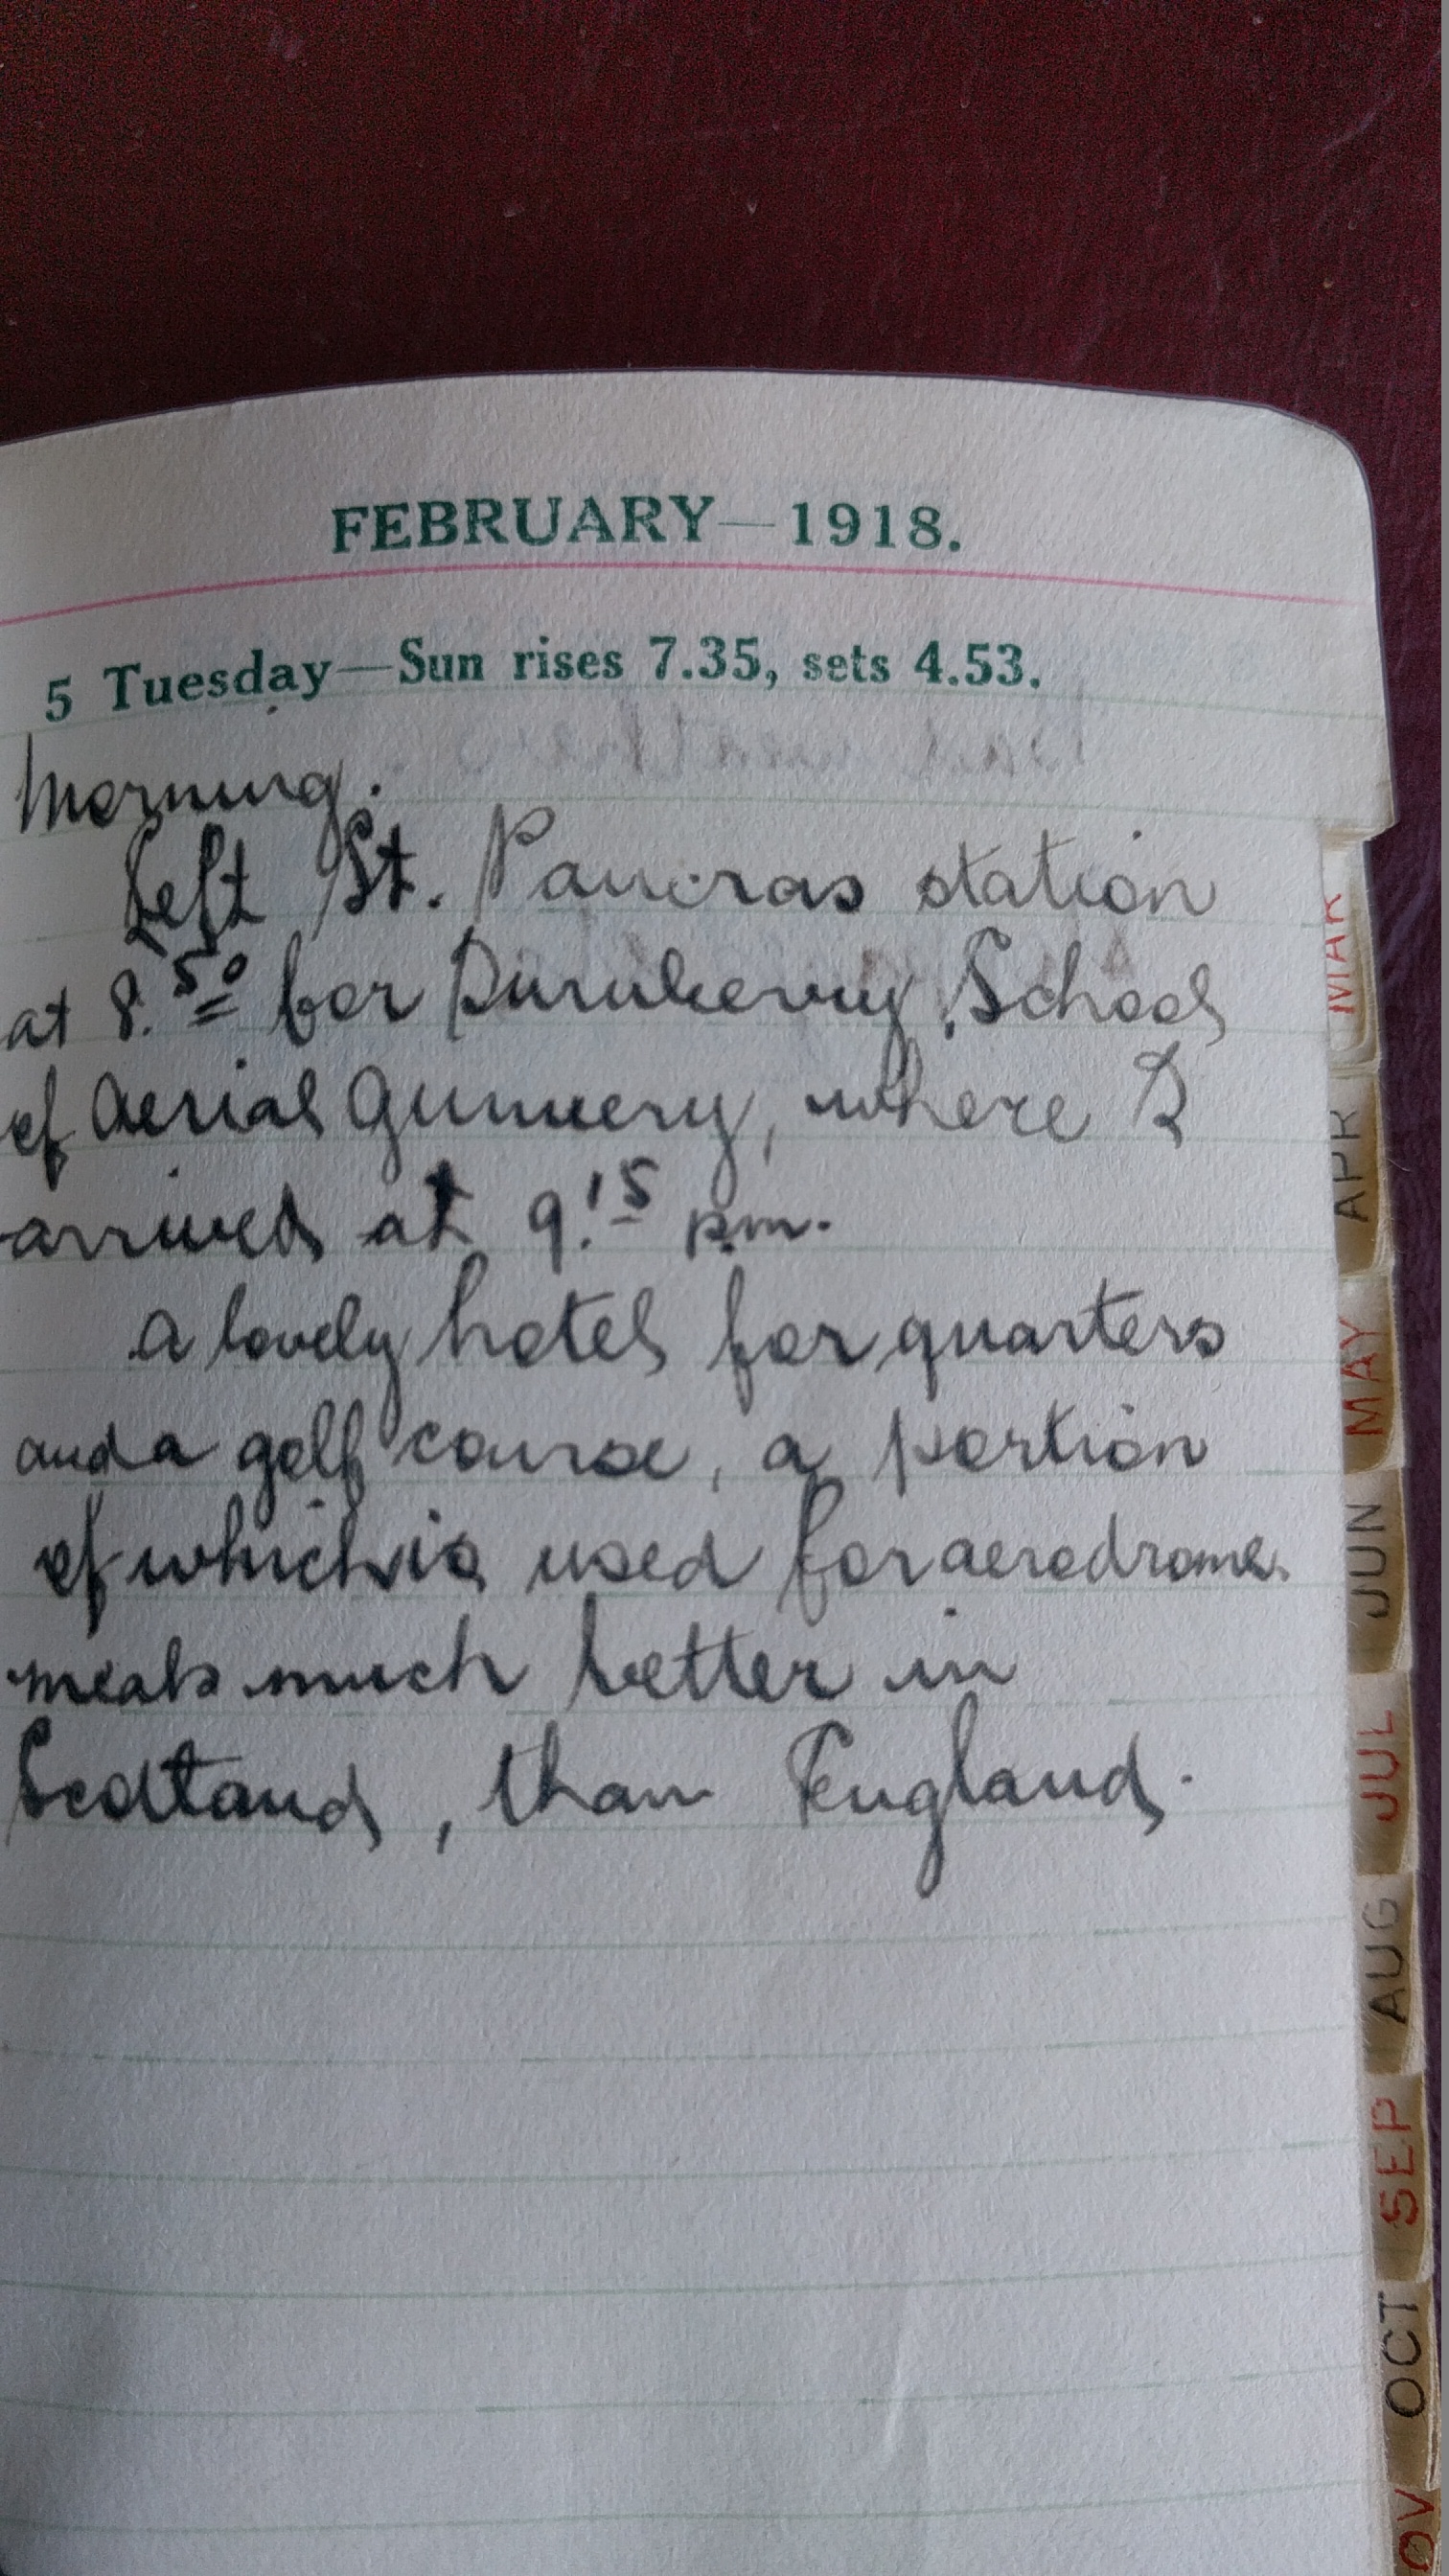 FEBRUARY—1918.
5 Tuesday—Sun rises 7.35, sets 4.53.
Morning.
Left St. Pancras station
at 8.50 for Turnberry School
of Aerial Gunnery, where I
arrived at 9.15 p.m.
A lovely hotel for quarters
and a golf course, a portion
of which is used for aerodrome.
meals much better in
Scotland, than England.
MAR
APR
MAY
JUN
JUL
AUG
SEP
OCT
OV